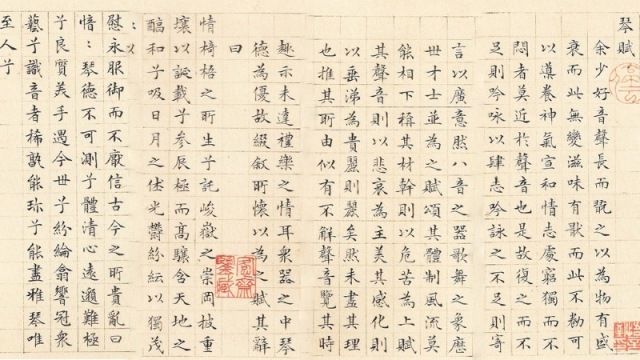 琴賦
余少好音聲長而翫之以為物有盛
衰而此無變滋味有猒而此不勌可
以導養神氣宣和情志處窮獨而不
悶者莫近於聲音也是故復之而不
足則吟咏以肆志吟詠之不足則寄
言以廣意然八音之器歌舞之象歷
世才士並為之賦頌其體制風流莫
能相下稱其材幹則以危苦為上賦
其聲音則以悲哀為主美其感化則
以垂涕為貴麗則麗矣然未盡其理
也推其所由似有不解聲音覽其時
趣亦未達禮樂之情耳衆器之中琴
德為優故綴叙所懷以為之賦其辭
曰
情椅梧之所生兮託峻嶽之崇岡披重
壤以誕載兮參辰極而高驤含天地之
醕和兮吸日月之休光欝紛紜以獨茂
：以
慰永服御而不厭信古今之所貴亂曰
愔：琴德不可測兮體清心遠邈難極
兮良質美手遇今世兮紛綸翕響冠衆
藝兮識音者稀孰能珍兮能盡雅琴唯
至人兮